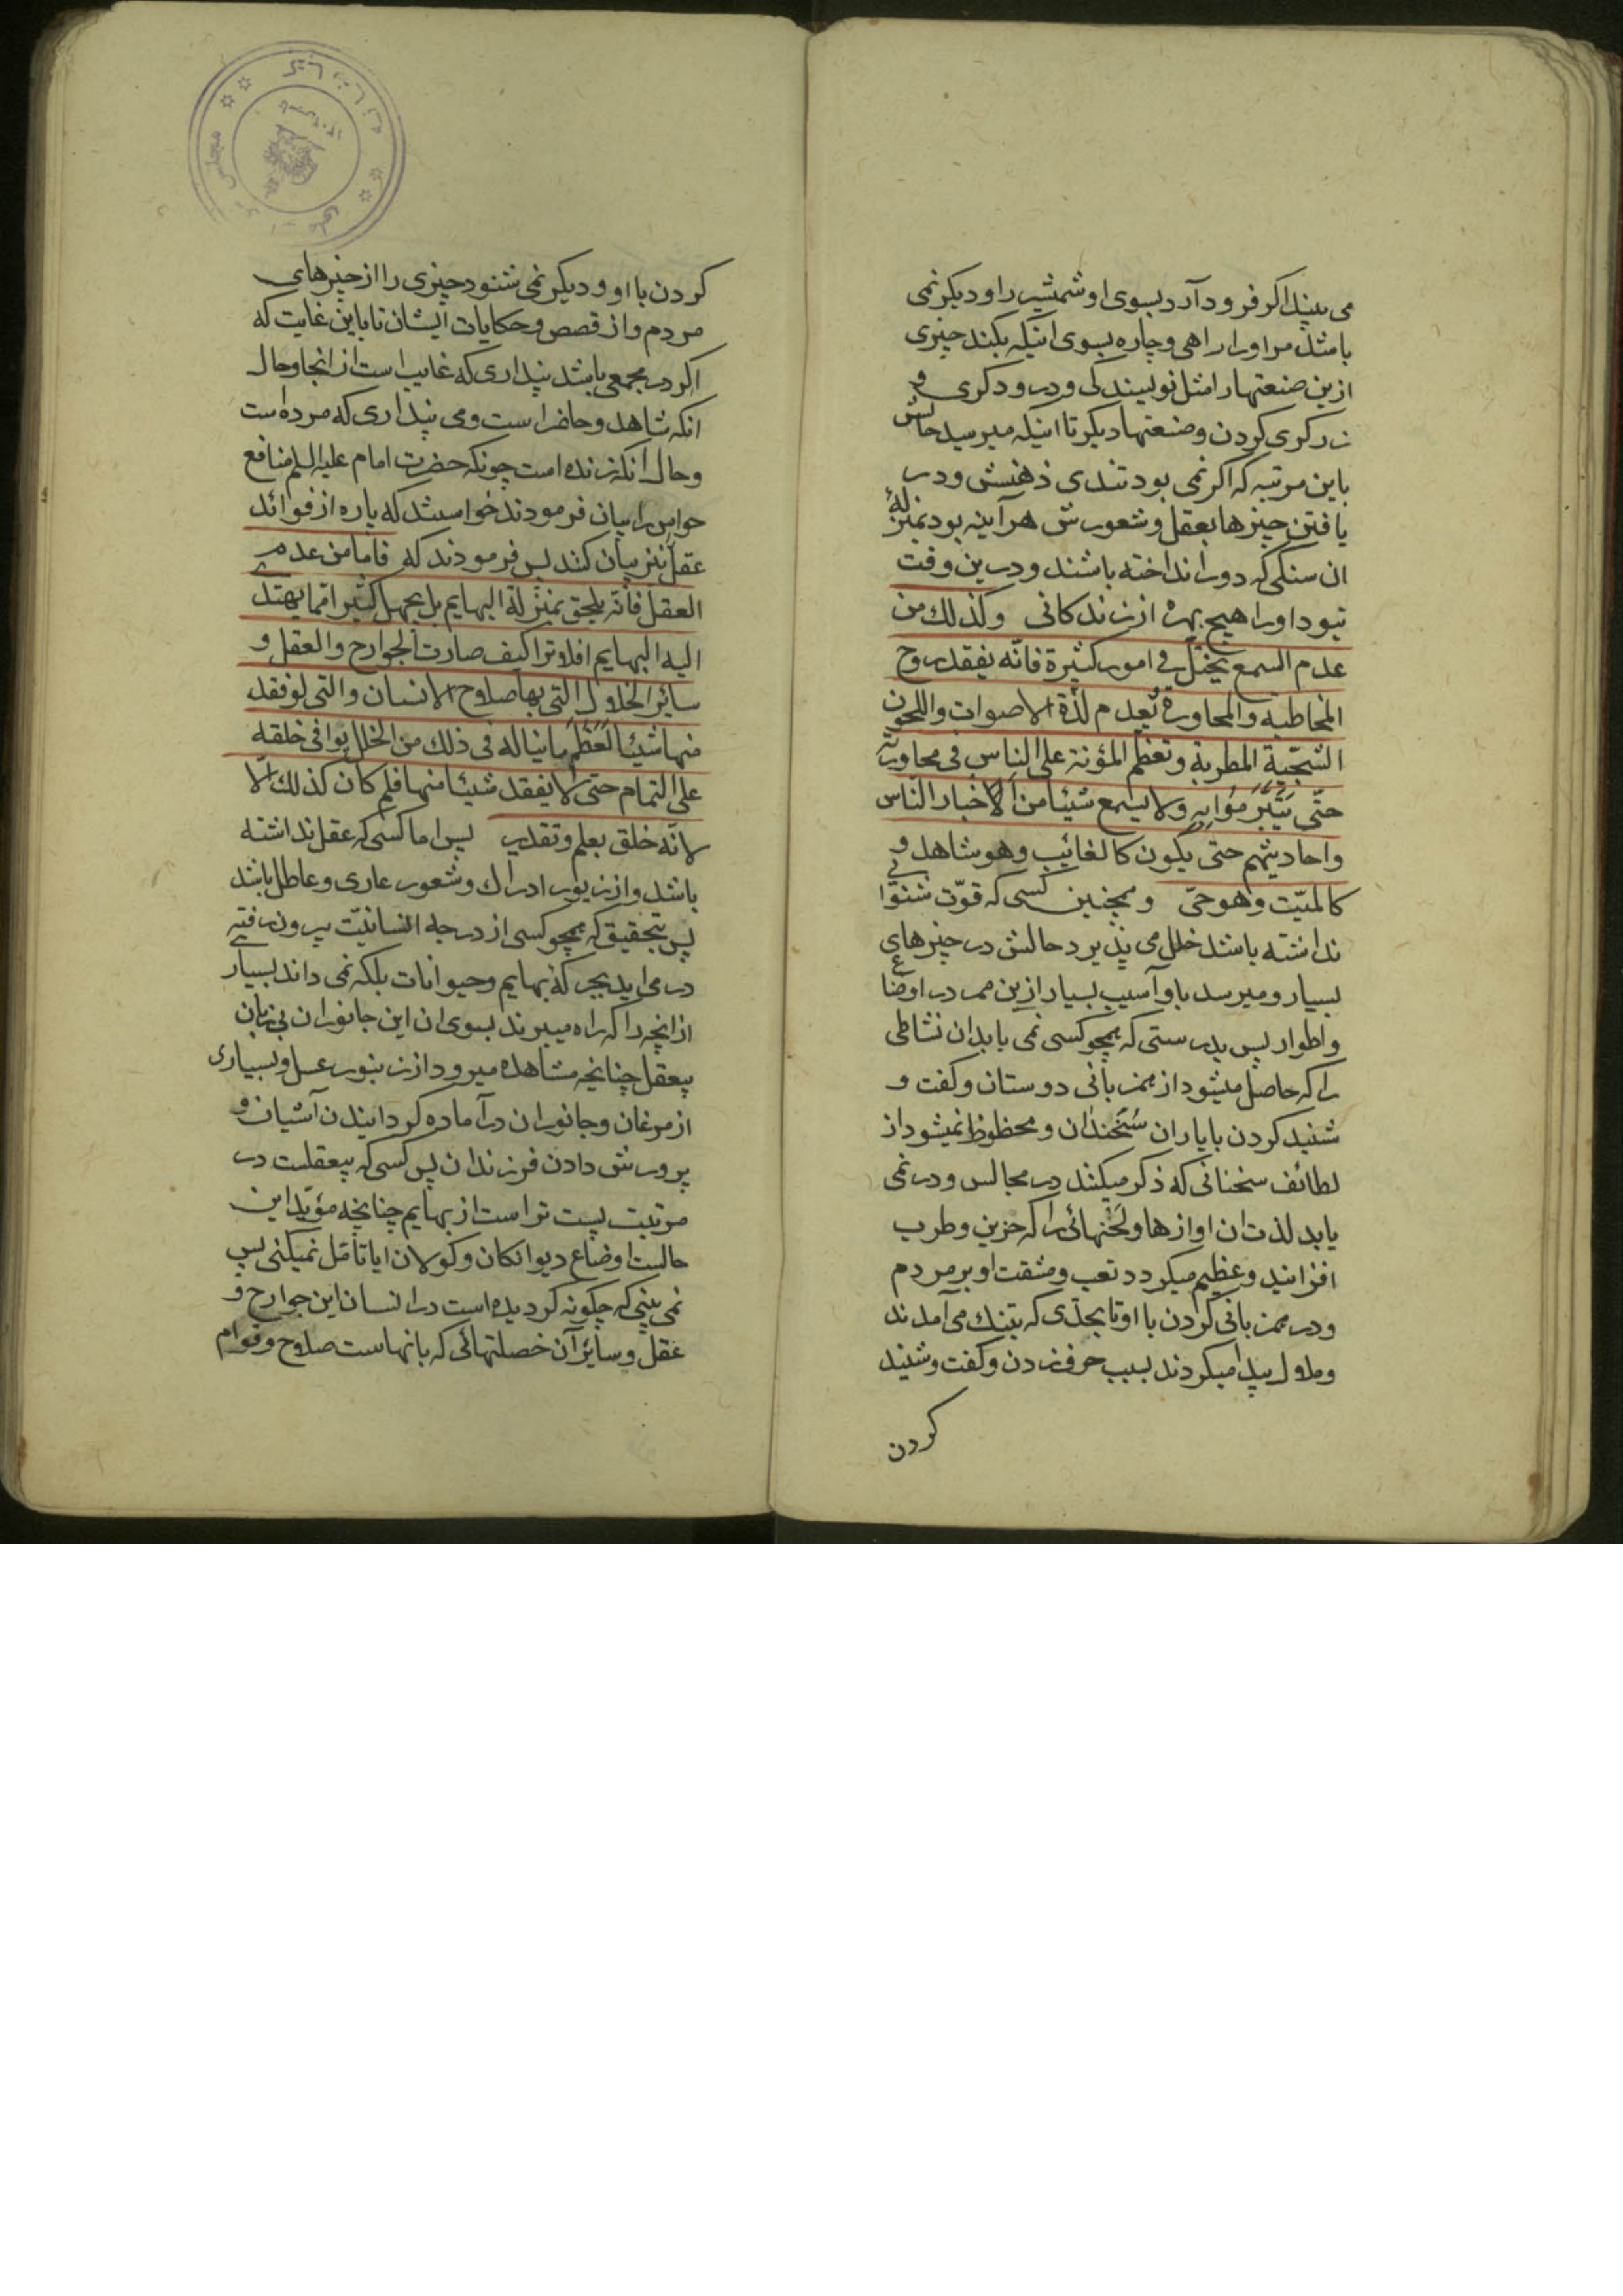 می بیند اکر فرود آرد بسوی او شمشیر را و دیکر نمی
باشد مر او را راهی و چاره بسوی اینکه بکند چیزی
ازین صنعتها را مثل نویسندکی و درودکری و
زرکری کردن و صنعتها دیکر تا اینکه میرسید حالش
باین مرتبه که اکر نمی بود تندی ذهنش و در
یافتن چیزها بعقل و شعورش هر آینه بود بمنزلهٔ
ان سنکی که دور انداخته باشند و درین وقت
نبود او را هیچ بهره از زندکانی وکذلك من
عدم السمع یختلّ فی امور کثیرة فانّه یفقد روح
المخاطبه والمحاورة و یُعدم لذّة الاصوات واللحون
الشجّیة المطربة و تعظم المؤنة علی الناس فی محاورته
حتّی یتبرّموا به ولا یسمع شیئا من الاخبار الناس
واحادیثهم حتّی یکون کالغائب وهو شاهد و
کالمیّت وهو حیّ و همچنین کسی که قوّت شنوایی
نداشته باشد خلل می پذیرد حالش در چیزهای
بسیار و میرسد باو آسیب بسیار ازین ممر در اوضاع
واطوار پس بدرستی که همچو کسی نمی یابد ان نشاطی
را که حاصل میشود از همزبانی دوستان و کفت و
شنید کردن با یاران سُخَندان و محظوظ نمیشود از
لطائف سخنانی که ذکر میکنند در مجالس و در نمی
یابد لذت ان اوازها و لَحْنهائی را که حزین و طرب
افزایند و عظیم میکردد تعب و مشقت او بر مردم
و در همزبانی کردن با او تا بحدّی که بتنك می آمدند
و ملول پیدا میکردند بسبب حرف زدن و کفت و شنید
کردن
کردن با او و دیکر نمی شنود چیزی را از خبرهای
مردم و از قصص و حکایات ایشان تا باین غایت که
اکر در مجمعی باشد پنداری که غایب است از انجا و حال
انکه شاهد و حاضر است و می پنداری که مرده است
و حال انکه زنده است چونکه حضرت امام علیه السلم منافع
حواس را بیان فرمودند خواستند که پاره از فوائد
عقل نیز بیان کنند پس فرمودند که فامّا من عدم
العقل فانّه یلحق بمنزلة البهایم بل یجهل کثیرا ممّا یهتدی
الیه البهایم افلا تری کیف صارت الجوارح والعقل و
سائر الخلال التی بها صلاح الانسان والتی لو فقد
منها شیئا لَعَظُمَ ما یناله فی ذلك من الخلل یوافی خلقه
علی التمام حتی لا یفقد شیئا منها فلم کان کذلك الّا
لانّه خلق بعلم و تقدیر پس اما کسی که عقل نداشته
باشد و از زیور ادراك و شعور عاری و عاطل باشد
پس بتحقیق که همچو کسی از درجه انسانیّت بیرون رفته
در می اید بجر که بهایم و حیوانات بلکه نمی داند بسیاری
از انچه را که راه میبرند بسوی ان این جانوران بی زبان
بیعقل چنانچه مشاهده میرود از زنبور عسل و بسیاری
از مرغان و جانوران در آماده کردانیدن آشیان و
پرورش دادن فرزندان پس کسی که بیعقلست در
مرتبت پست تر است از بهایم چنانچه مؤیّد این
حالست اوضاع دیوانکان و کولان ایا تأمّل نمیکنی پس
نمی بینی که چکونه کردیده است در انسان این جوارح و
عقل و سائر آن خصلتهائی که بانهاست صلاح و قوام